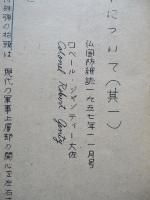 について(其一)
仏国防雑誌一九五七年一一月号
ロベール・ジャンティー大佐
Colonel Robert Genty
殊弾の抬頭は 現代の軍事上層部の関心を左右